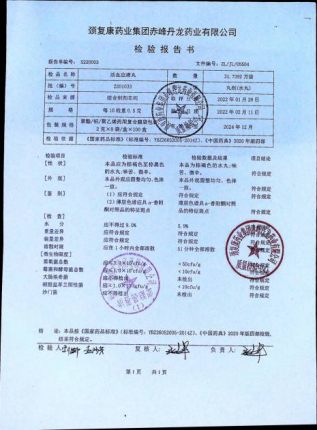 颈复康药业集团赤峰丹龙药业有限公司
检验报告书
报告单编号: S220003 文件编号: ZL/JL05004
检品名称 活血应痛丸 数量 31.7392万袋
批(编)号 2201033 剂型 丸剂(水丸)
检品来源 综合制剂车间 2022年01月29日
规格 每10粒重0.5克 2022年02月11日
聚酯/铝/聚乙烯药用复合膜袋
2克×8袋/盒×100盒 2024年12月
检验依据 《国家药品标准》 YBZ26082005-2014Z)、《中国药典》2020年版四部
检验项目 检验标准 检验数据及结果 项目结论
【性状】 本品应为棕褐色至棕黑色 本品为棕褐色的水丸;味 符合规定
的水丸;味苦、微辛。 苦、微辛。
【外观】 本品外观应圆整均匀、色泽 本品外观圆整均匀、色泽 符合规定
一致。 一致。
【鉴别】 (1)应符合规定 符合规定 符合规定
(2)薄层色谱具α-香附酮 薄层色谱具α-香附酮对照 符合规定
对照品的特征斑点 品的特征斑点
【检查】
水分 应不得过9.0% 5.9% 符合规定
重量差异 应符合规定 符合规定 符合规定
装量差异 应符合规定 符合规定 符合规定
溶散时限 应用1小时内全部溶散 51分钟全部溶散 符合规定
【微生物限度】
需氧菌总数 <50cfu/g 符合规定
霉菌和酵母菌总数 <10cfu/g 符合规定
大肠埃希菌 未检出 符合规定
耐胆盐革兰阴性菌 <10cfu/g
沙门菌 未检出 符合规定
结论: 本品按《国家药品标准》(标准编号: YBZ26082005-2014Z)、《中国药典》2020年版四部检验,
结果符合规定。
检验人: 复核人: 负责人:
第1页 共1页